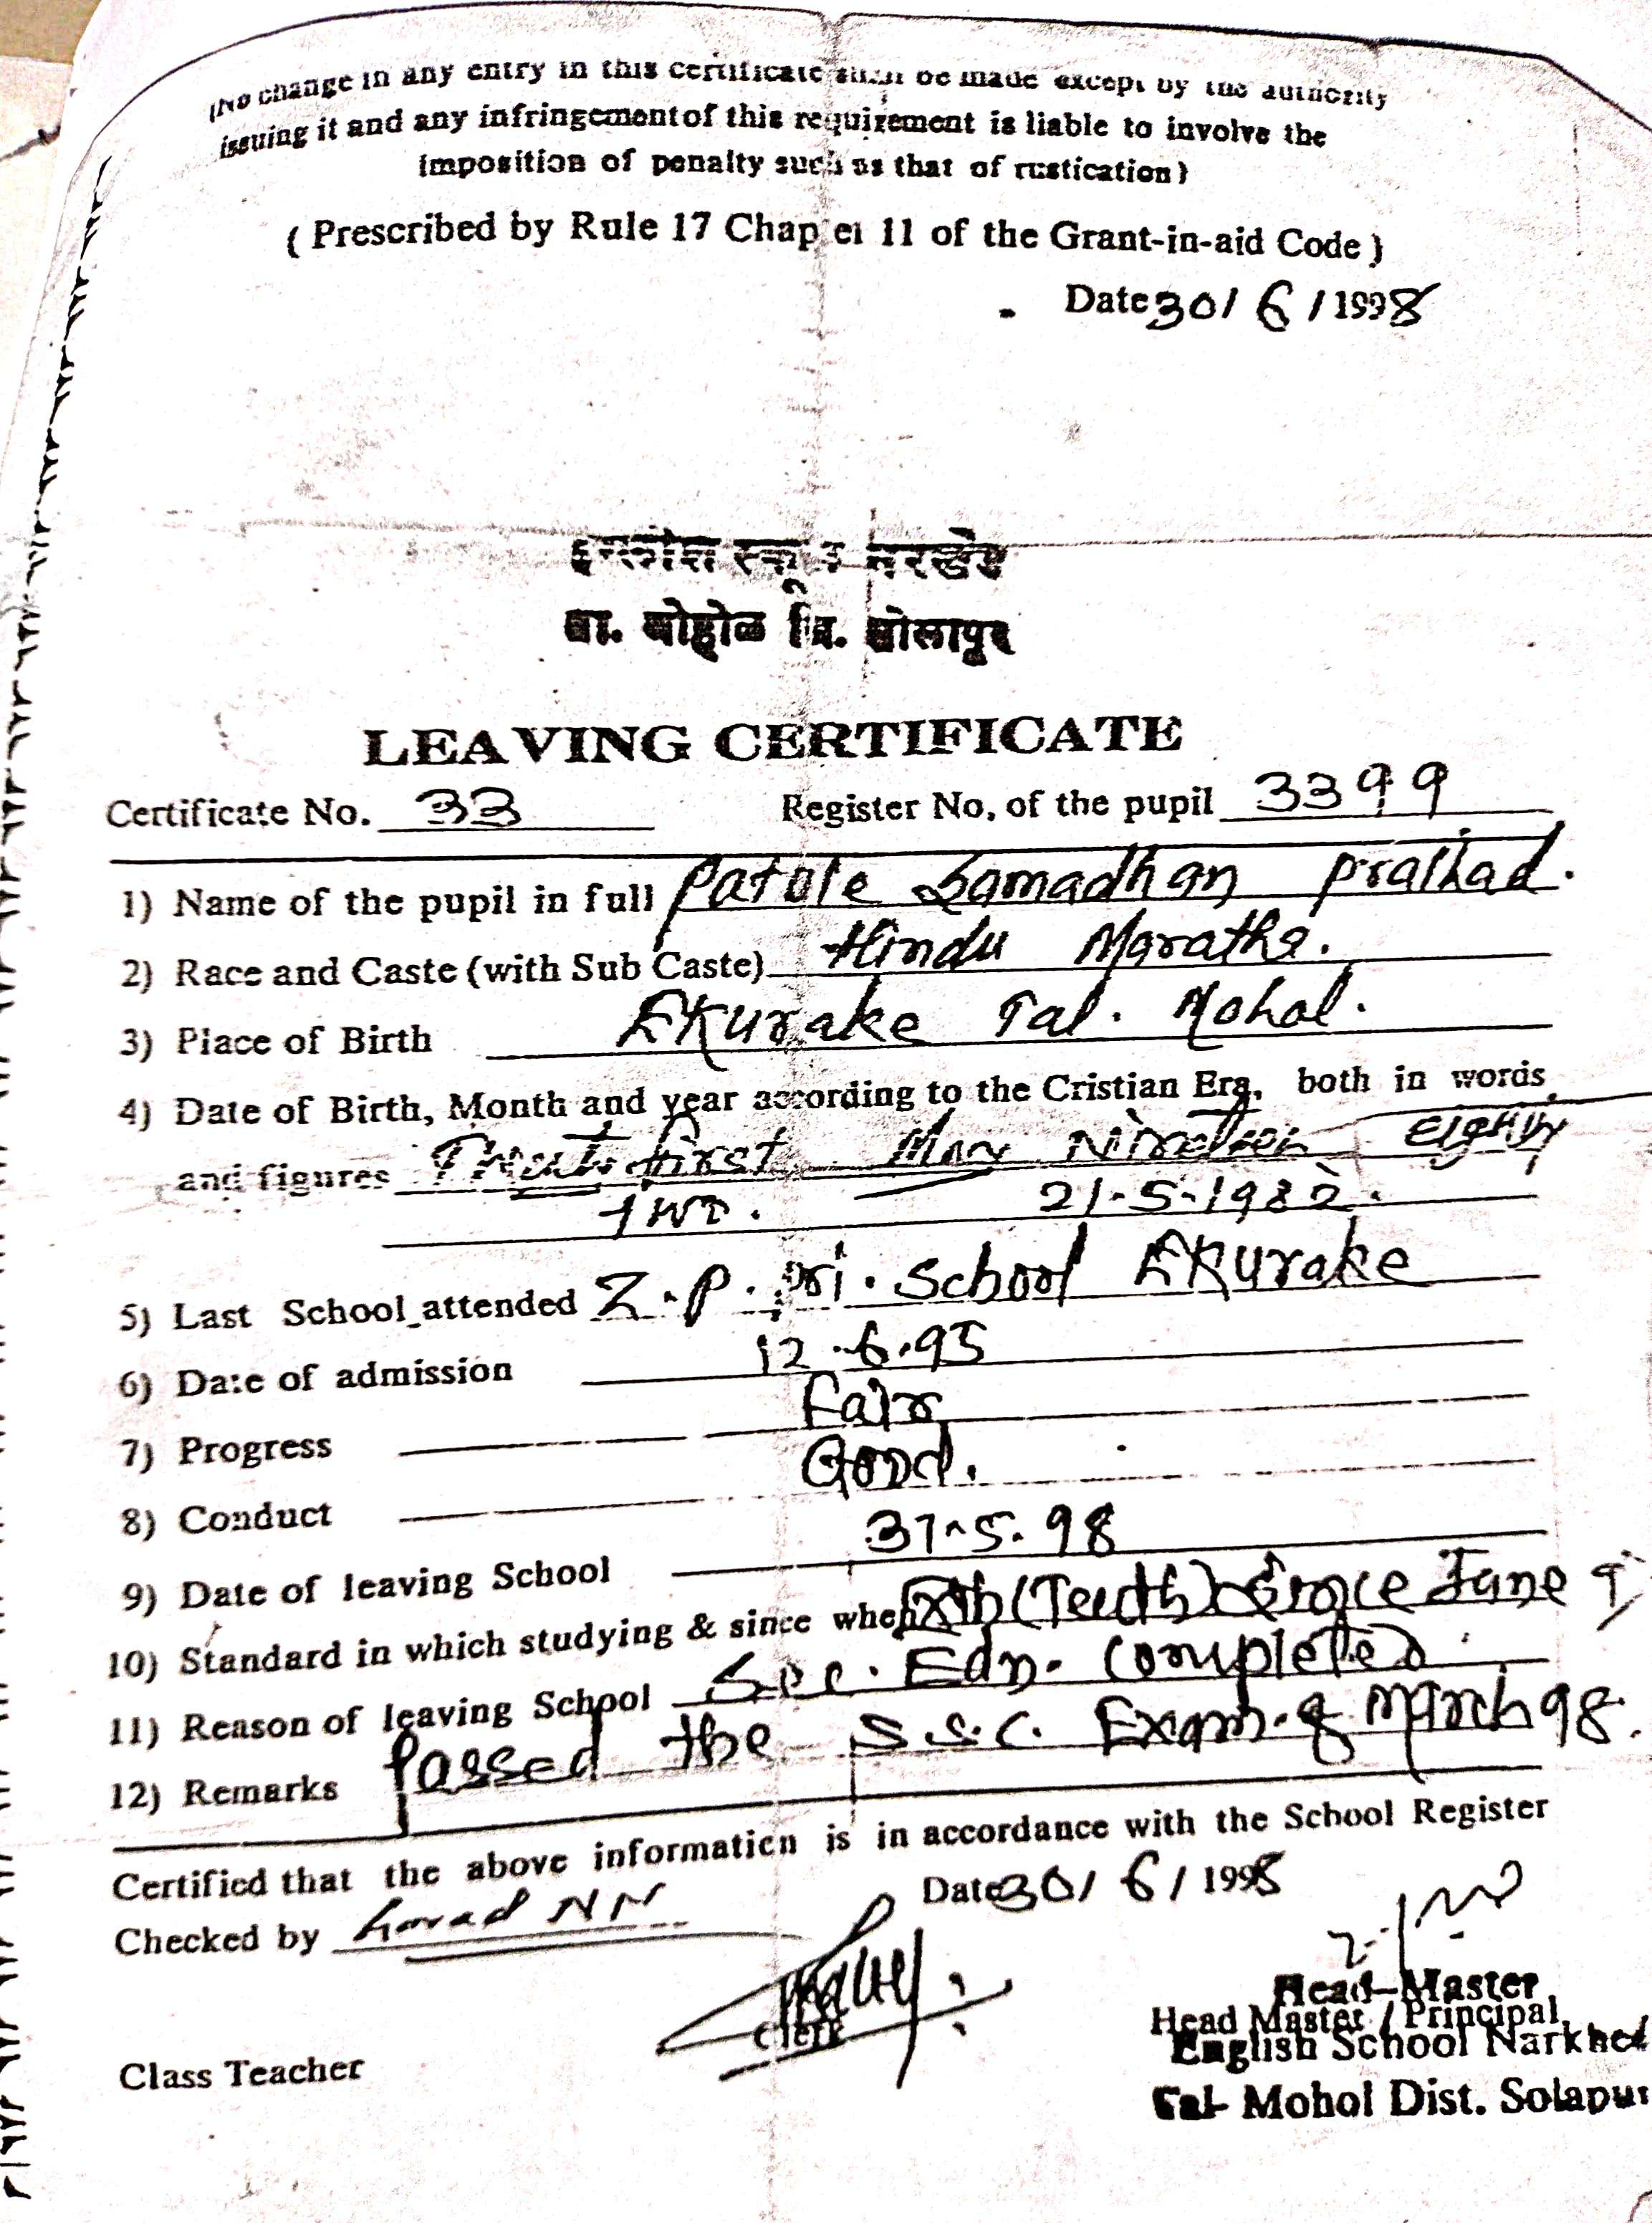 (No change in any entry in this certificate shall be made except by the authority
issuing it and any infringement of this requirement is liable to involve the
imposition of penalty such as that of rustication)
( Prescribed by Rule 17 Chapter 11 of the Grant-in-aid Code )
Date 30/6/1998
इंग्लीश स्कूल नरखेड
ता. मोहोळ जि. सोलापूर
LEAVING CERTIFICATE
Certificate No. 33 Register No. of the pupil 3399
1) Name of the pupil in full Patole Samadhan Pralhad.
2) Race and Caste (with Sub Caste) Hindu Maratha.
3) Place of Birth Ekurake Tal. Mohol.
4) Date of Birth, Month and year according to the Cristian Era, both in words
and figures first May Ninteen Eighty
Two. 21-5-1982.
5) Last School attended Z.P. Pri. School Ekurake
6) Date of admission 12.6.95
7) Progress Fair
8) Conduct Good.
9) Date of leaving School 31-5.98
10) Standard in which studying & since when Xth (Tenth) June
11) Reason of leaving School Sec. Edn. Completed
12) Remarks Passed the S.S.C. Exam. of March 98.
Certified that the above information is in accordance with the School Register
Date 30/6/1998
Checked by NN
Clerk
Class Teacher
Head-Master
Head Master / Principal
English School Narkhed
Tal- Mohol Dist. Solapur